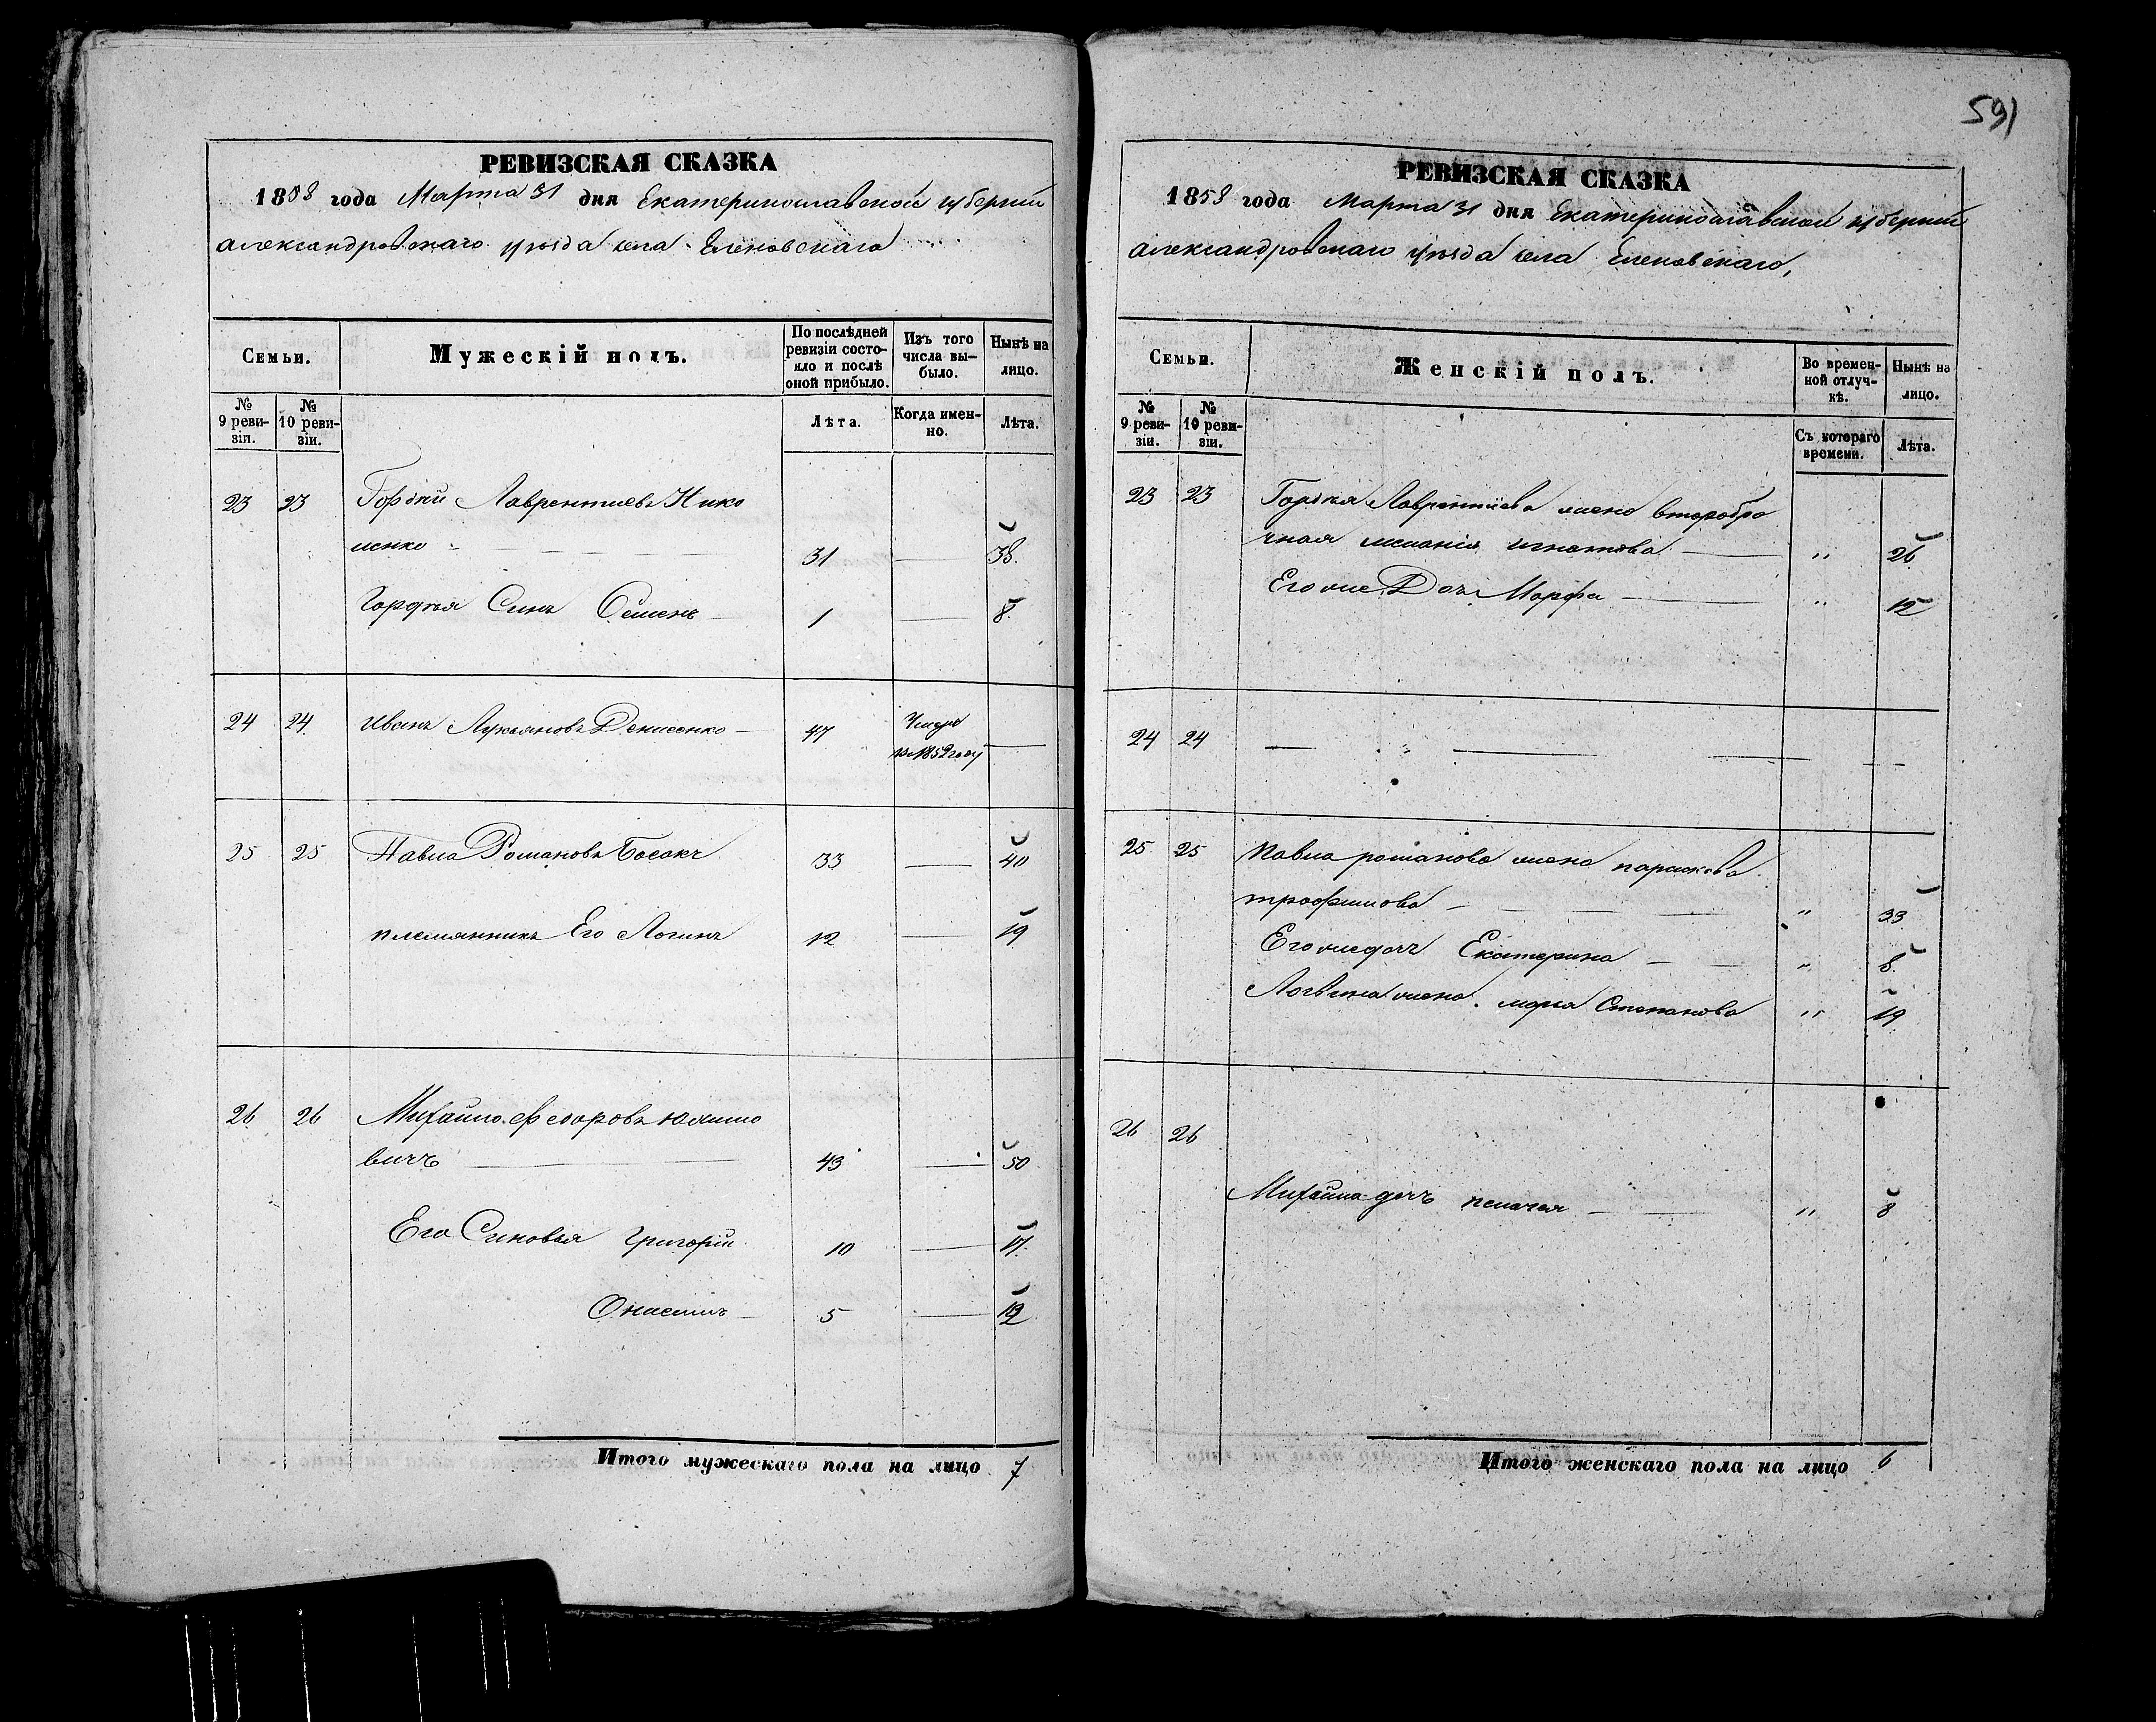 РЕВИЗСКАЯ СКАЗКА
1858 года Марта 31 дня Екатеринославской губерніи
Александровскаго уѣзда села Еленовскаго
Семьи.
Мужескій полъ.
По послѣдней ревизіи состояло и послѣ оной прибыло.
Изъ того числа выбыло.
Нынѣ на лицо.
№ 9 ревизіи.
№ 10 ревизіи.
Лѣта.
Когда именно.
Лѣта.
23 23 Гордѣй Лаврентиевъ Нико
ленко 31 38
Гордѣя Синъ Семенъ 1 8
24 24 Иванъ Лукьяновъ Денисенко 47 Умеръ
въ 1852 году
25 25 Павла Романовъ Босакъ 33 40
племянникъ Его Логинъ 12 19
26 26 Михайло Федоровъ
вичъ 43 50
Его Синовья Григорій 10 17
Онисимъ 5 12
Итого мужескаго пола на лицо 7
591
РЕВИЗСКАЯ СКАЗКА
1858 года Марта 31 дня Екатеринославской губерніи
Александровскаго уѣзда села Еленовскаго,
Семьи.
Женскій полъ.
Во временной отлучкѣ.
Нынѣ на лицо.
№ 9 ревизіи.
№ 10 ревизіи.
Съ котораго времени.
Лѣта.
23 23 Гордѣя Лаврентіева жена второбра
чная меланія игнатова " 26
Его же Доч Марфа " 12
24 24
25 25 Павла романова жена парижева
трофимова " 33
Его же доч Екатерина " 8
Логвина жена марья Степанова " 19
26 26
Михайла дочъ пелагея " 8
Итого женскаго пола на лицо 6